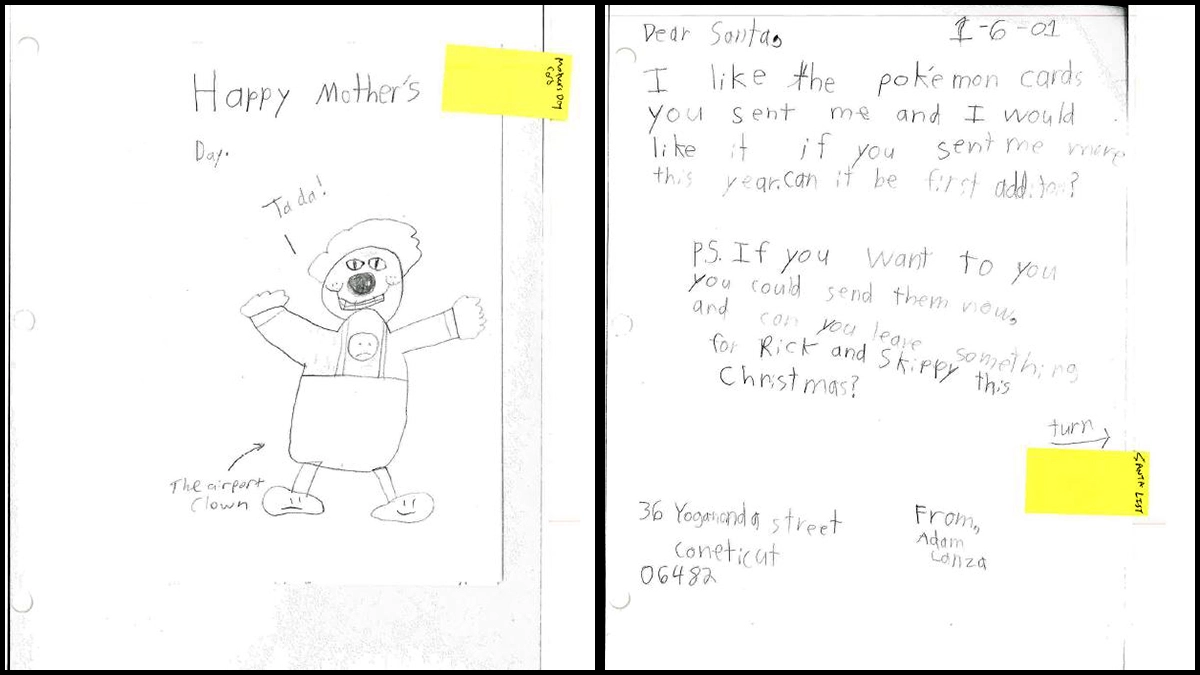 Happy Mother's
Day.
Mothers Day
Card
Ta da!
The airport
Clown
Dear Santa,
1-6-01
I like the pokémon cards
you sent me and I would
like it if you sent me more
this year. can it be first addition?
P.S. If you want to you
you could send them now,
and can you leave something
for Rick and Skippy this
Christmas?
turn
SANTA LIST
36 Yogananda street
coneticut
06482
From,
Adam
Lanza